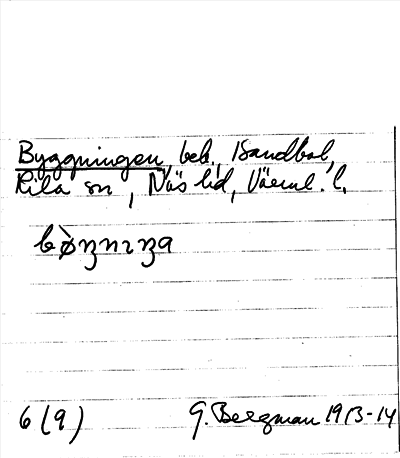 Byggningen, beb., Sandbol,
Kila sn, Näs hd, Värml. l.
bø̀ŋnıŋa
6 (9) G. Bergman 1913-14